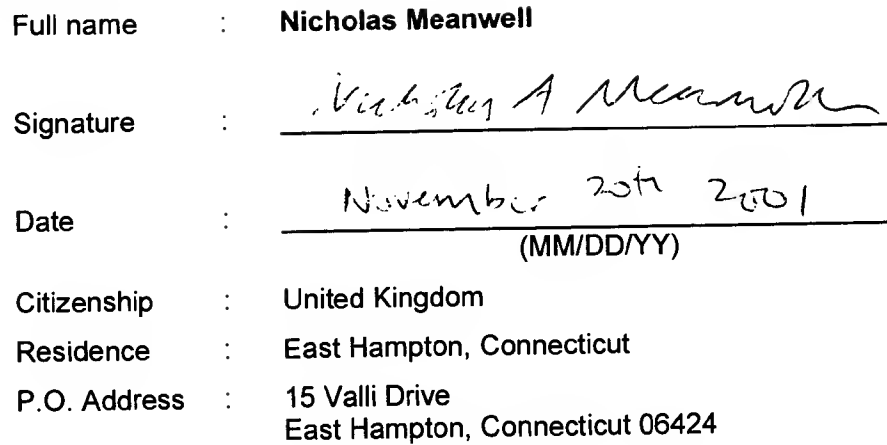 Full name : Nicholas Meanwell
Signature : Nicholas A Meanwell
Date : November 20th 2001
(MM/DD/YY)
Citizenship : United Kingdom
Residence : East Hampton, Connecticut
P.O. Address : 15 Valli Drive
East Hampton, Connecticut 06424